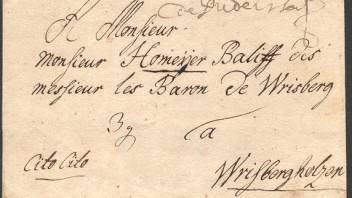 A Monsieur
monsieur Homeyer Baliff des
messieur les Baron de Wrisberg
a
Cito Cito
Wrisbergholzen